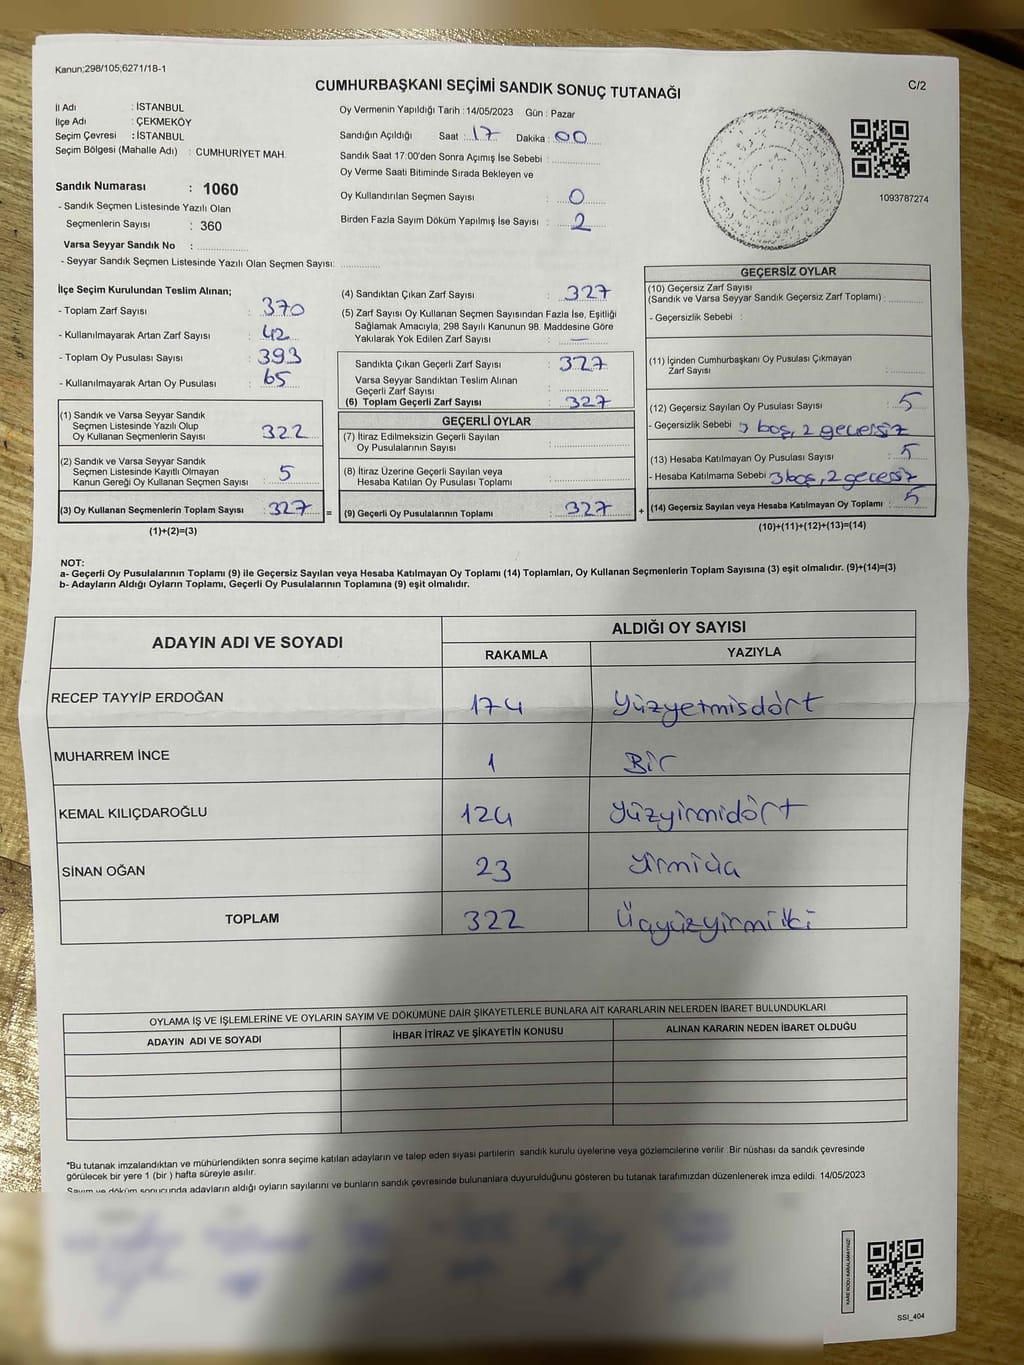 Kanun;298/105,6271/18-1
C/2
CUMHURBAŞKANI SEÇİMİ SANDIK SONUÇ TUTANAĞI
İl Adı : İSTANBUL
İlçe Adı : ÇEKMEKÖY
Seçim Çevresi : İSTANBUL
Seçim Bölgesi (Mahalle Adı) : CUMHURİYET MAH.
Sandık Numarası : 1060
- Sandık Seçmen Listesinde Yazılı Olan
Seçmenlerin Sayısı : 360
Varsa Seyyar Sandık No :
- Seyyar Sandık Seçmen Listesinde Yazılı Olan Seçmen Sayısı:
Oy Vermenin Yapıldığı Tarih : 14/05/2023 Gün : Pazar
Sandığın Açıldığı Saat : 17 Dakika : 00
Sandık Saat 17:00'den Sonra Açımış İse Sebebi :
Oy Verme Saati Bitiminde Sırada Bekleyen ve
Oy Kullandırılan Seçmen Sayısı : 0
Birden Fazla Sayım Döküm Yapılmış İse Sayısı : 2
1093787274
İlçe Seçim Kurulundan Teslim Alınan;
- Toplam Zarf Sayısı : 370
- Kullanılmayarak Artan Zarf Sayısı : 42
- Toplam Oy Pusulası Sayısı : 393
- Kullanılmayarak Artan Oy Pusulası : 65
(1) Sandık ve Varsa Seyyar Sandık
Seçmen Listesinde Yazılı Olup
Oy Kullanan Seçmenlerin Sayısı : 322
(2) Sandık ve Varsa Seyyar Sandık
Seçmen Listesinde Kayıtlı Olmayan
Kanun Gereği Oy Kullanan Seçmen Sayısı : 5
(3) Oy Kullanan Seçmenlerin Toplam Sayısı : 327
(1)+(2)=(3)
=
(4) Sandıktan Çıkan Zarf Sayısı : 327
(5) Zarf Sayısı Oy Kullanan Seçmen Sayısından Fazla İse, Eşitliği
Sağlamak Amacıyla, 298 Sayılı Kanunun 98. Maddesine Göre
Yakılarak Yok Edilen Zarf Sayısı : —
Sandıkta Çıkan Geçerli Zarf Sayısı : 327
Varsa Seyyar Sandıktan Teslim Alınan
Geçerli Zarf Sayısı :
(6) Toplam Geçerli Zarf Sayısı : 327
GEÇERLİ OYLAR
(7) İtiraz Edilmeksizin Geçerli Sayılan
Oy Pusulalarının Sayısı :
(8) İtiraz Üzerine Geçerli Sayılan veya
Hesaba Katılan Oy Pusulası Toplamı :
(9) Geçerli Oy Pusulalarının Toplamı : 327
+
GEÇERSİZ OYLAR
(10) Geçersiz Zarf Sayısı
(Sandık ve Varsa Seyyar Sandık Geçersiz Zarf Toplamı) :
- Geçersizlik Sebebi :
(11) İçinden Cumhurbaşkanı Oy Pusulası Çıkmayan
Zarf Sayısı :
(12) Geçersiz Sayılan Oy Pusulası Sayısı : 5
- Geçersizlik Sebebi : 3 boş, 2 geçersiz
(13) Hesaba Katılmayan Oy Pusulası Sayısı : 5
- Hesaba Katılmama Sebebi : 3 boş, 2 geçersiz
(14) Geçersiz Sayılan veya Hesaba Katılmayan Oy Toplamı : 5
(10)+(11)+(12)+(13)=(14)
NOT:
a- Geçerli Oy Pusulalarının Toplamı (9) ile Geçersiz Sayılan veya Hesaba Katılmayan Oy Toplamı (14) Toplamları, Oy Kullanan Seçmenlerin Toplam Sayısına (3) eşit olmalıdır. (9)+(14)=(3)
b- Adayların Aldığı Oyların Toplamı, Geçerli Oy Pusulalarının Toplamına (9) eşit olmalıdır.
ADAYIN ADI VE SOYADI
ALDIĞI OY SAYISI
RAKAMLA YAZIYLA
RECEP TAYYİP ERDOĞAN 174 Yüzyetmisdört
MUHARREM İNCE 1 Bir
KEMAL KILIÇDAROĞLU 124 Yüzyirmidört
SİNAN OĞAN 23
TOPLAM 322 Üçyüzyirmiiki
OYLAMA İŞ VE İŞLEMLERİNE VE OYLARIN SAYIM VE DÖKÜMÜNE DAİR ŞİKAYETLERLE BUNLARA AİT KARARLARIN NELERDEN İBARET BULUNDUKLARI
ADAYIN ADI VE SOYADI İHBAR İTİRAZ VE ŞİKAYETİN KONUSU ALINAN KARARIN NEDEN İBARET OLDUĞU
*Bu tutanak imzalandıktan ve mühürlendikten sonra seçime katılan adayların ve talep eden siyasi partilerin sandık kurulu üyelerine veya gözlemcilerine verilir. Bir nüshası da sandık çevresinde
görülecek bir yere 1 (bir ) hafta süreyle asılır.
Sayım ve döküm sonucunda adayların aldığı oyların sayılarını ve bunların sandık çevresinde bulunanlara duyurulduğunu gösteren bu tutanak tarafımızdan düzenlenerek imza edildi. 14/05/2023
KARE KODU KARALAMAYINIZ!
SSI_404